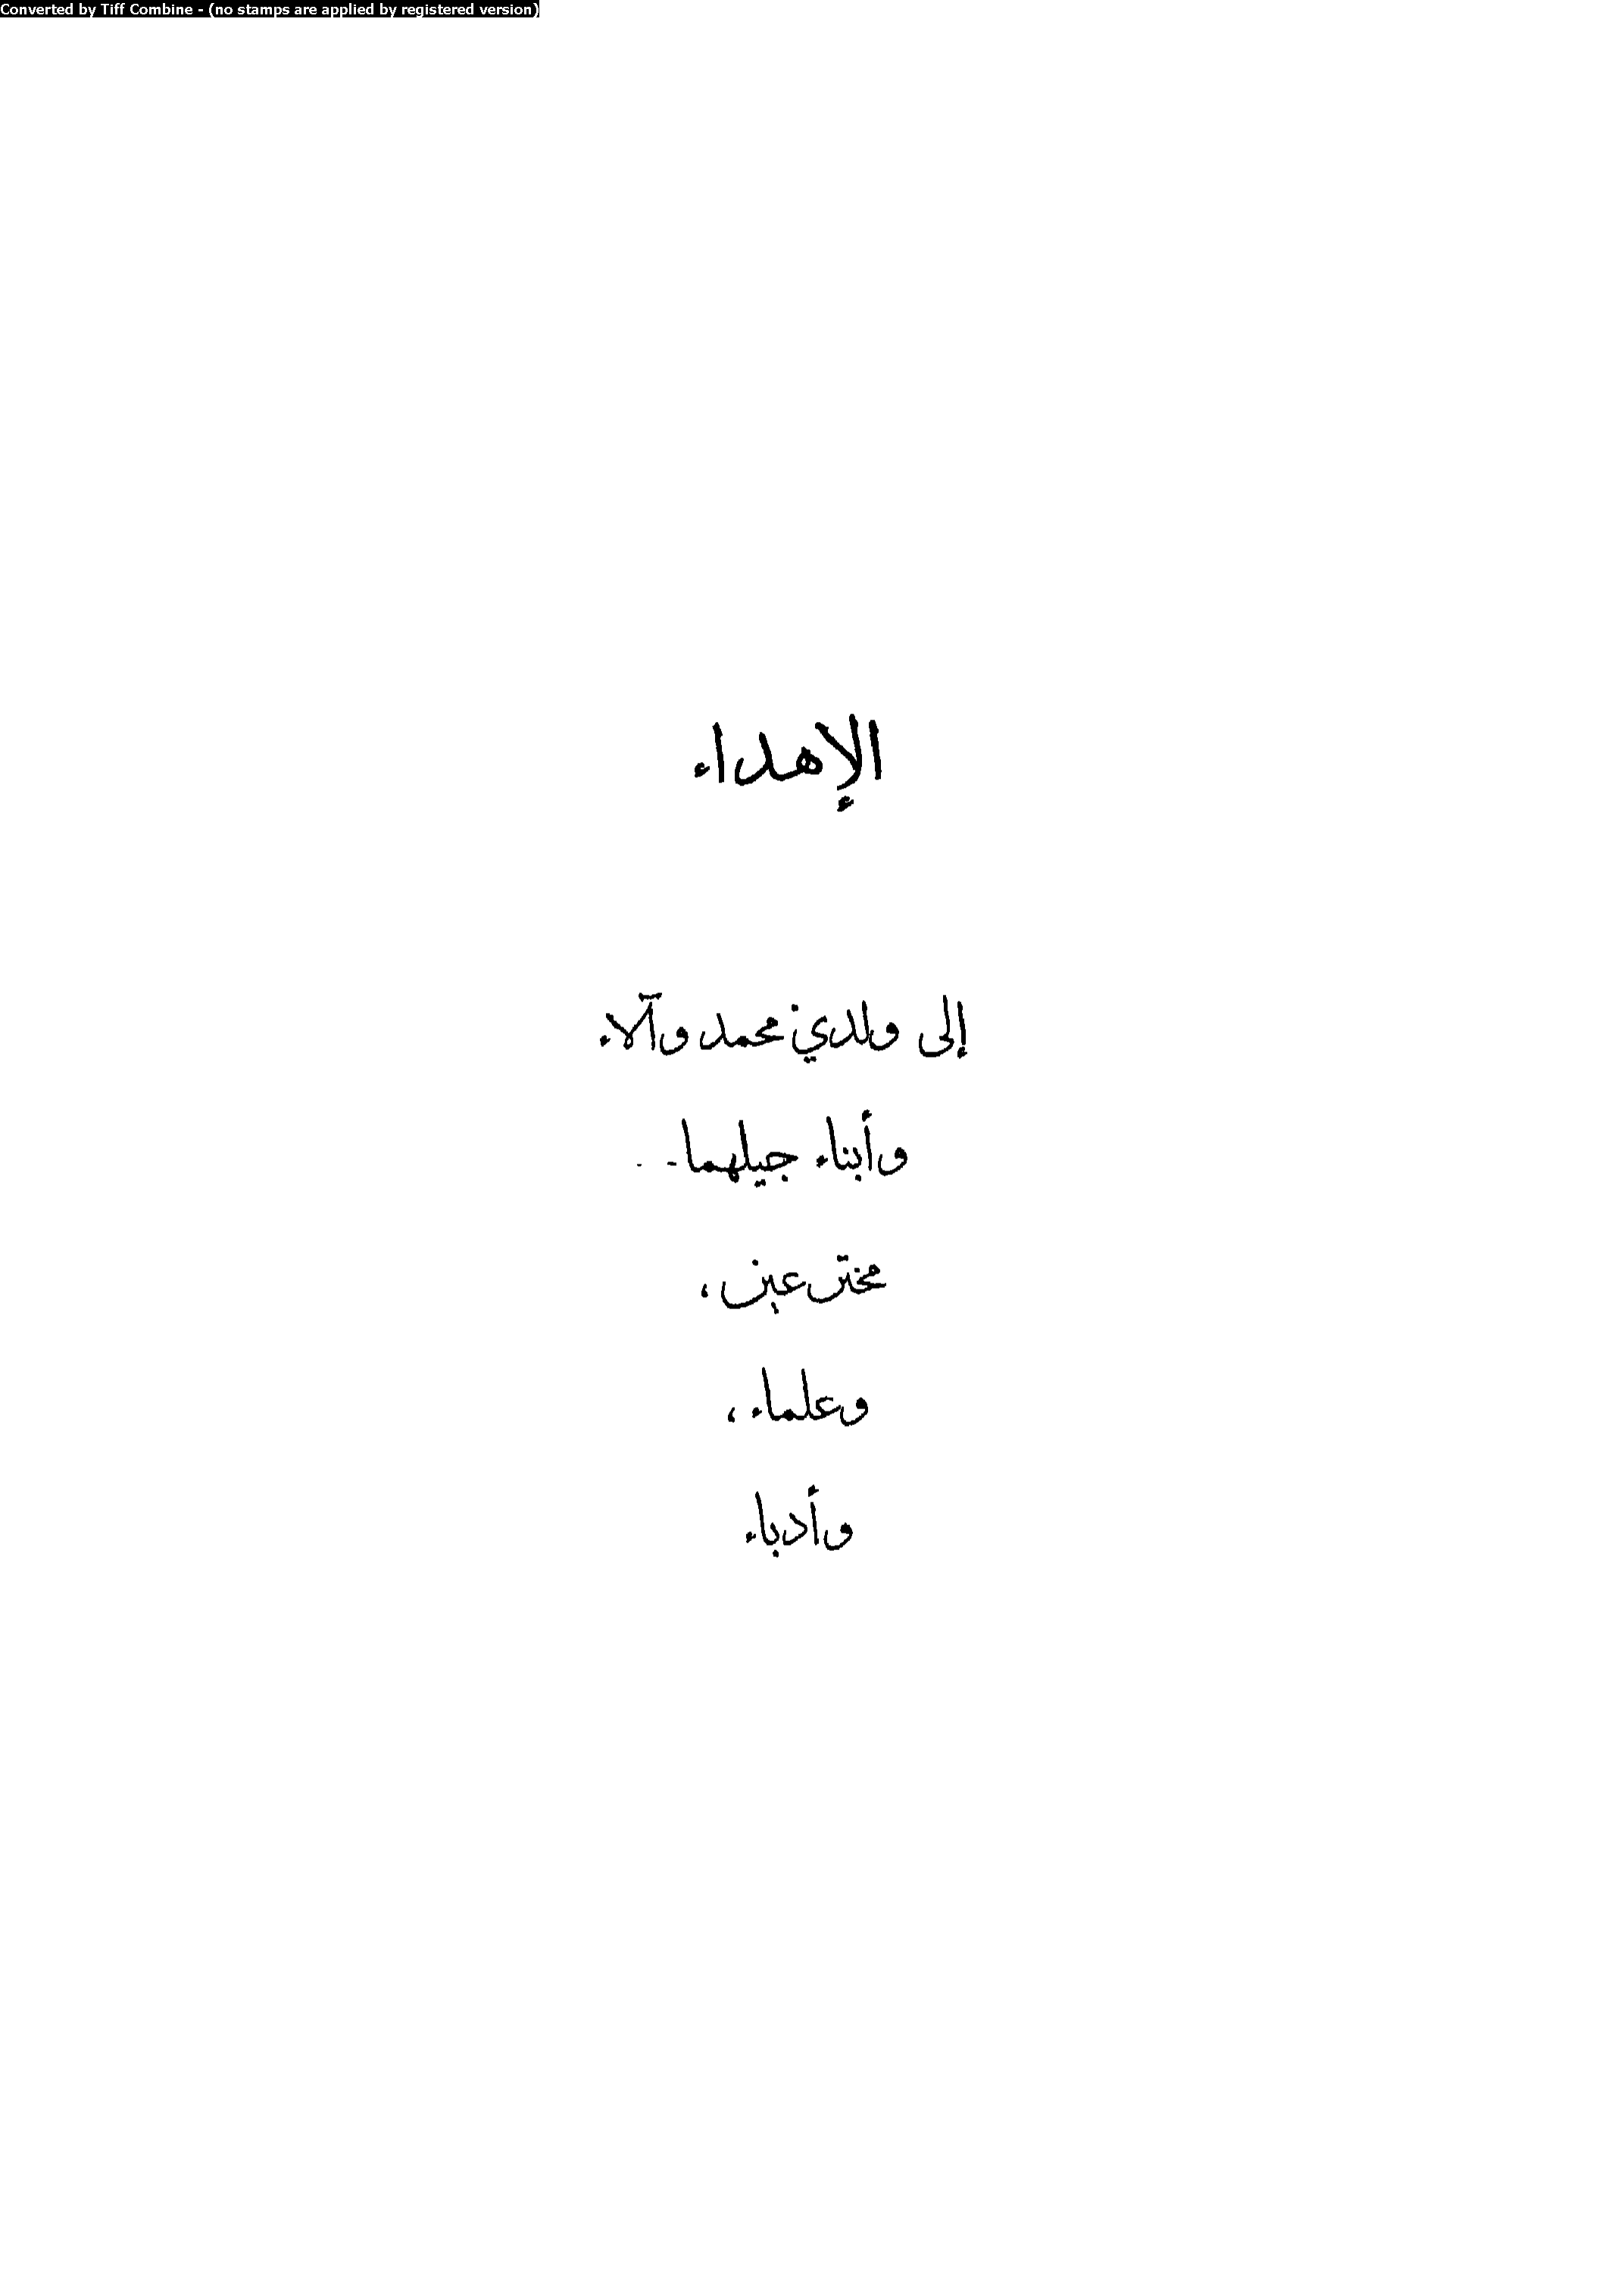 Converted by Tiff Combine - (no stamps are applied by registered version)
الإهداء
إلى ولدي محمد وآلاء
وأبناء جيلهما . .
مخترعين،
وعلماء،
وأدباء